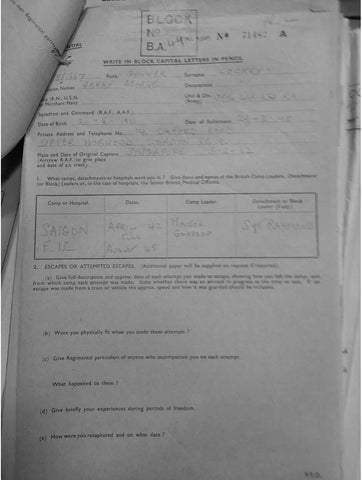 BLOCK
No
B.A.
No 71482 A
WRITE IN BLOCK CAPITAL LETTERS IN PENCIL
Rank GUNNER Surname
Names HARRY GEORGE Decorations
(R.N., U.S.N. or Merchant Navy) Unit & Div. (Army)
Squadron and Command (R.A.F., A.A.F.)
Date of Birth Date of Enlistment
Private Address and Telephone No. OXFORD ROAD
UPPER NORWOOD LONDON
Place and Date of Original Capture SINGAPORE
(Aircrew R.A.F. to give place
and date of a/c crash).
1. What camps, detachments or hospitals were you in? Give dates and names of the British Camp Leaders, Detachment
(or Block) Leaders or, in the case of hospitals, the Senior British Medical Officers.
Camp or Hospital. Dates. Camp Leader. Detachment or Block Leader (if any).
SAIGON APRIL 42 MAJOR Sgt RAYMOND
F.I.C. AUGUST 45
2. ESCAPES OR ATTEMPTED ESCAPES. (Additional paper will be supplied on request if required).
(a) Give full description and approx. date of each attempt you made to escape, showing how you left the camp, and
from which camp each attempt was made. State whether there was an air-raid in progress at the time or not. If an
escape was made from a train or vehicle the approx. speed and how it was guarded should be included.
(b) Were you physically fit when you made these attempts?
(c) Give Regimental particulars of anyone who accompanied you on each attempt.
What happened to them?
(d) Give briefly your experiences during periods of freedom.
(e) How were you recaptured and on what date?